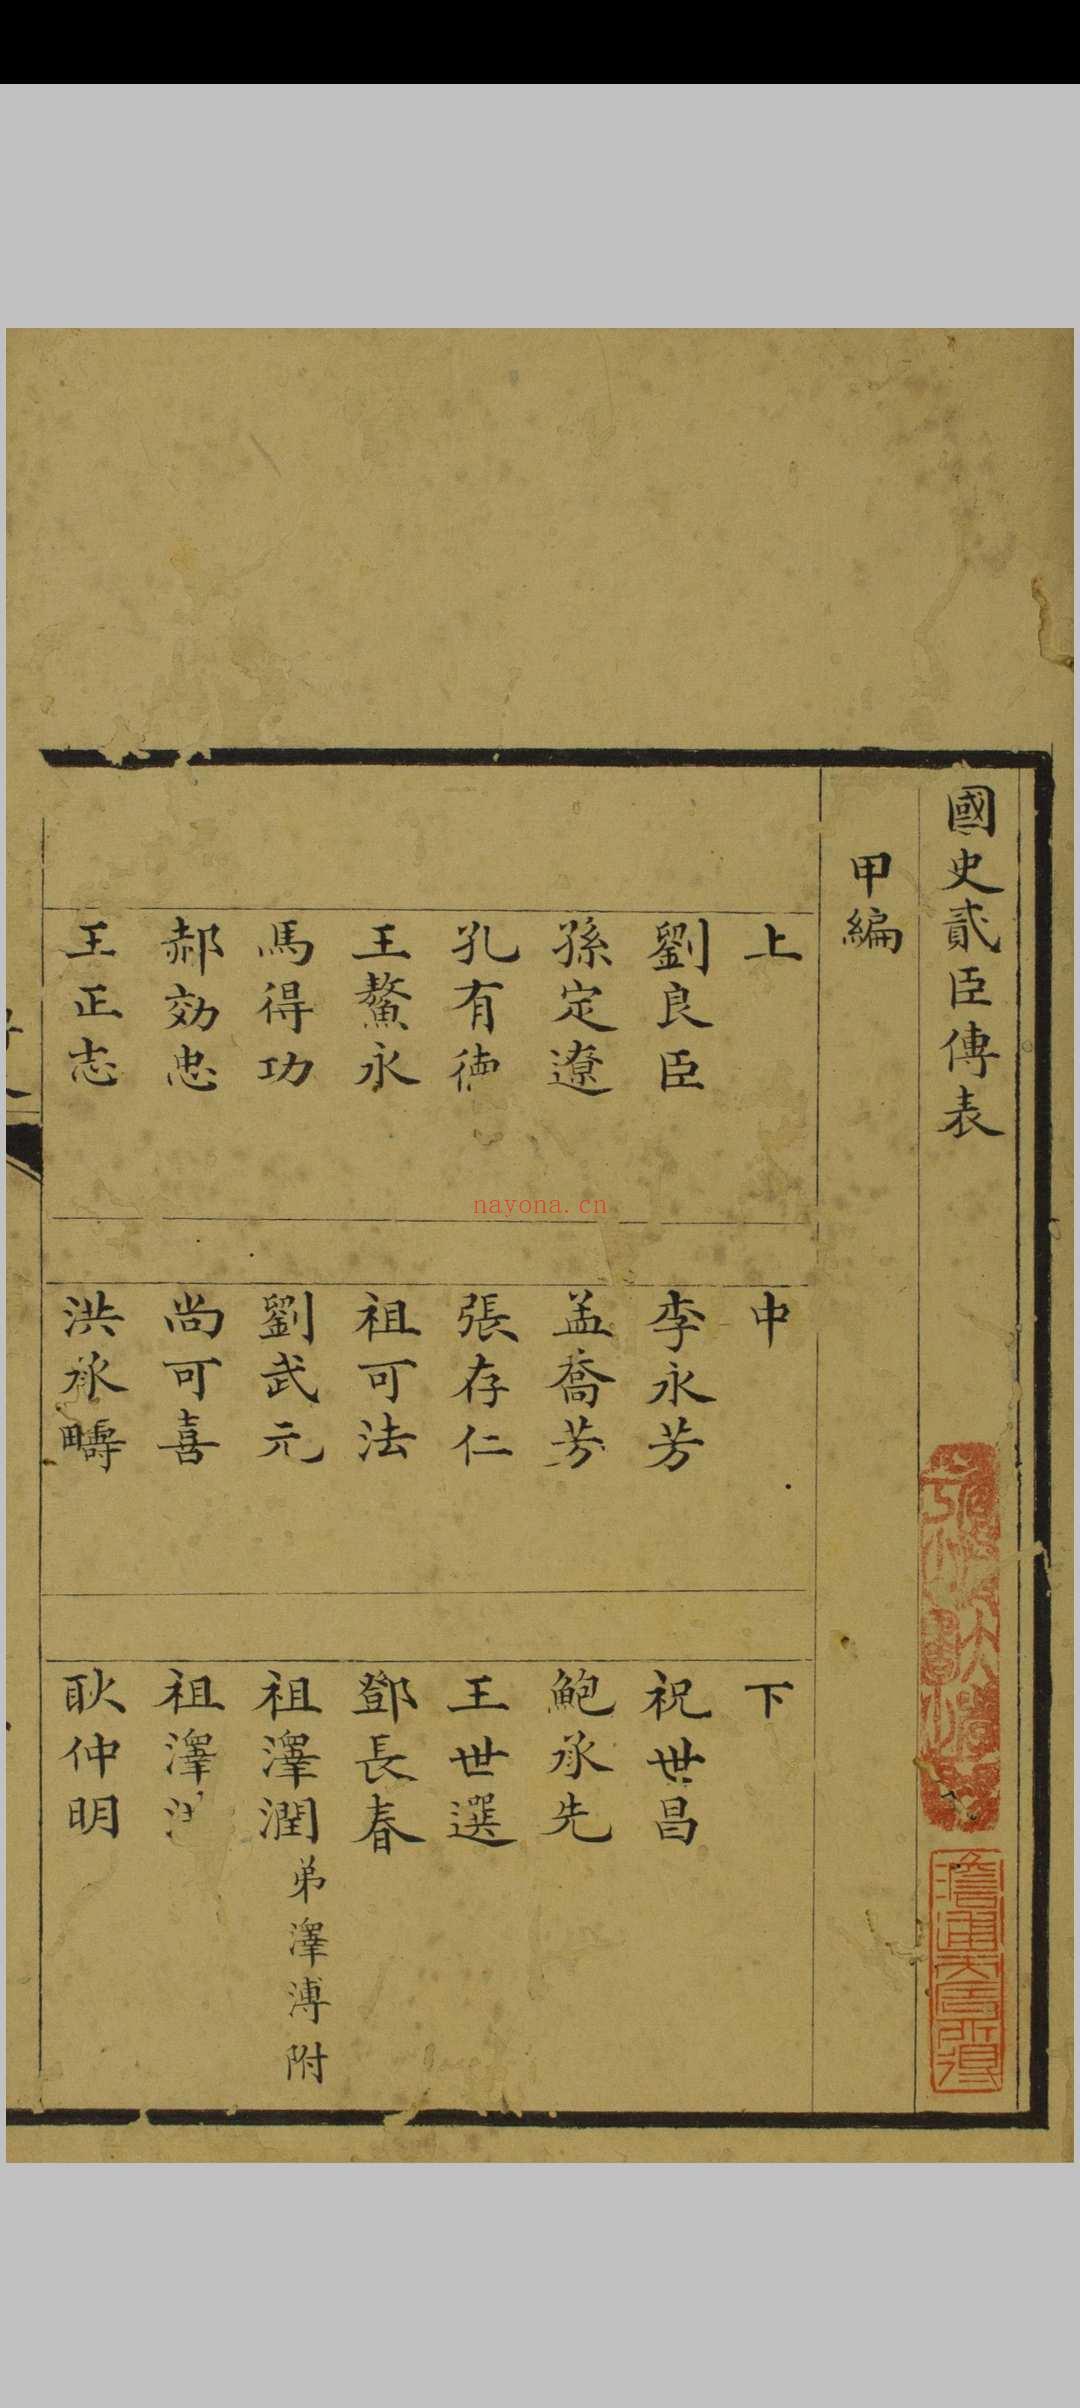 國史貳臣傳表
甲編
上
劉良臣
孫定遼
孔有德
王鰲永
馬得功
郝効忠
王正志
中
李永芳
孟喬芳
張存仁
祖可法
劉武元
尚可喜
洪承疇
下
祝世昌
鮑承先
王世選
鄧長春
祖澤潤弟澤溥附
祖澤
耿仲明
nayona.cn